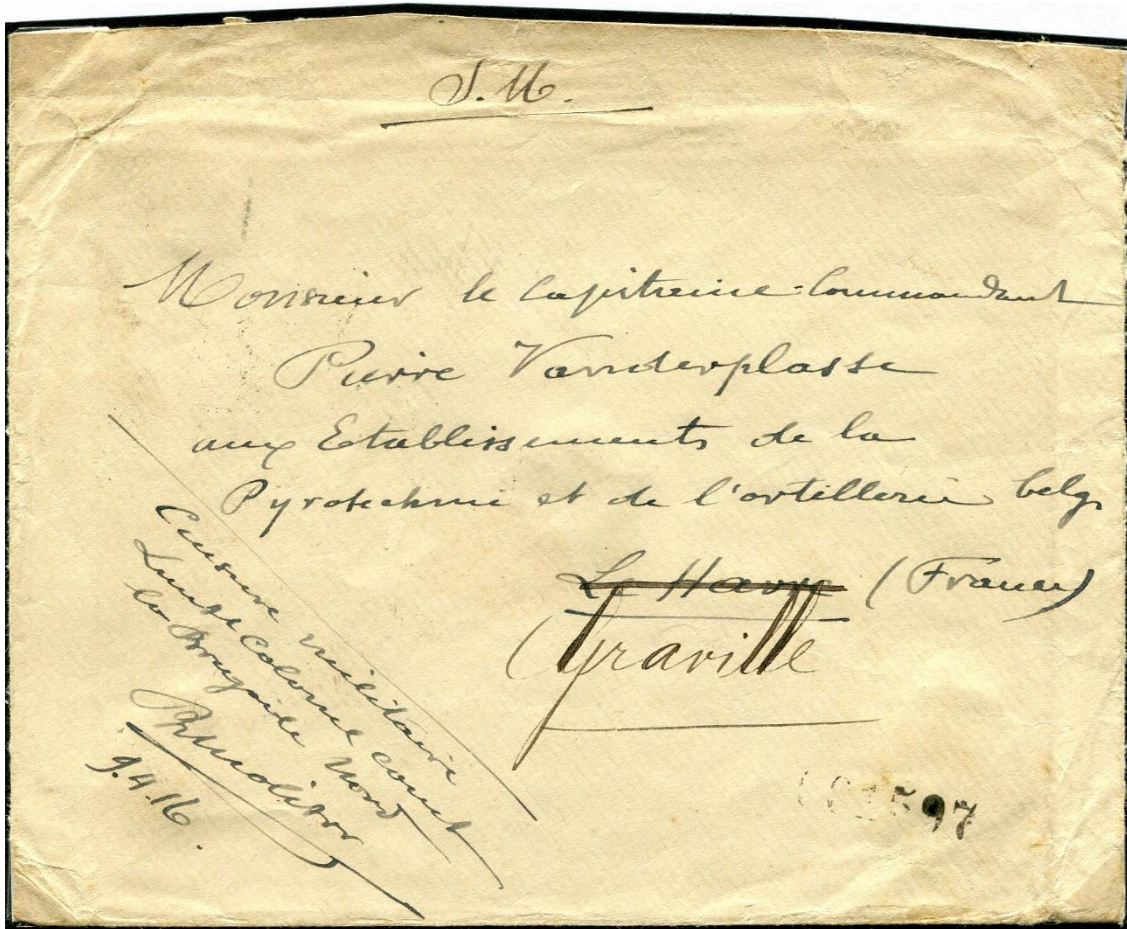 S.M.
Monsieur le Capitaine-Commandant
Pierre Vanderplasse
aux Etablissements de la
Pyrotechnie et de l'artillerie belge
Le Havre (France)
Graville
Censure militaire
Lieut Colonel comt
la Brigade Nord
Ph Molitor
9.4.16
597